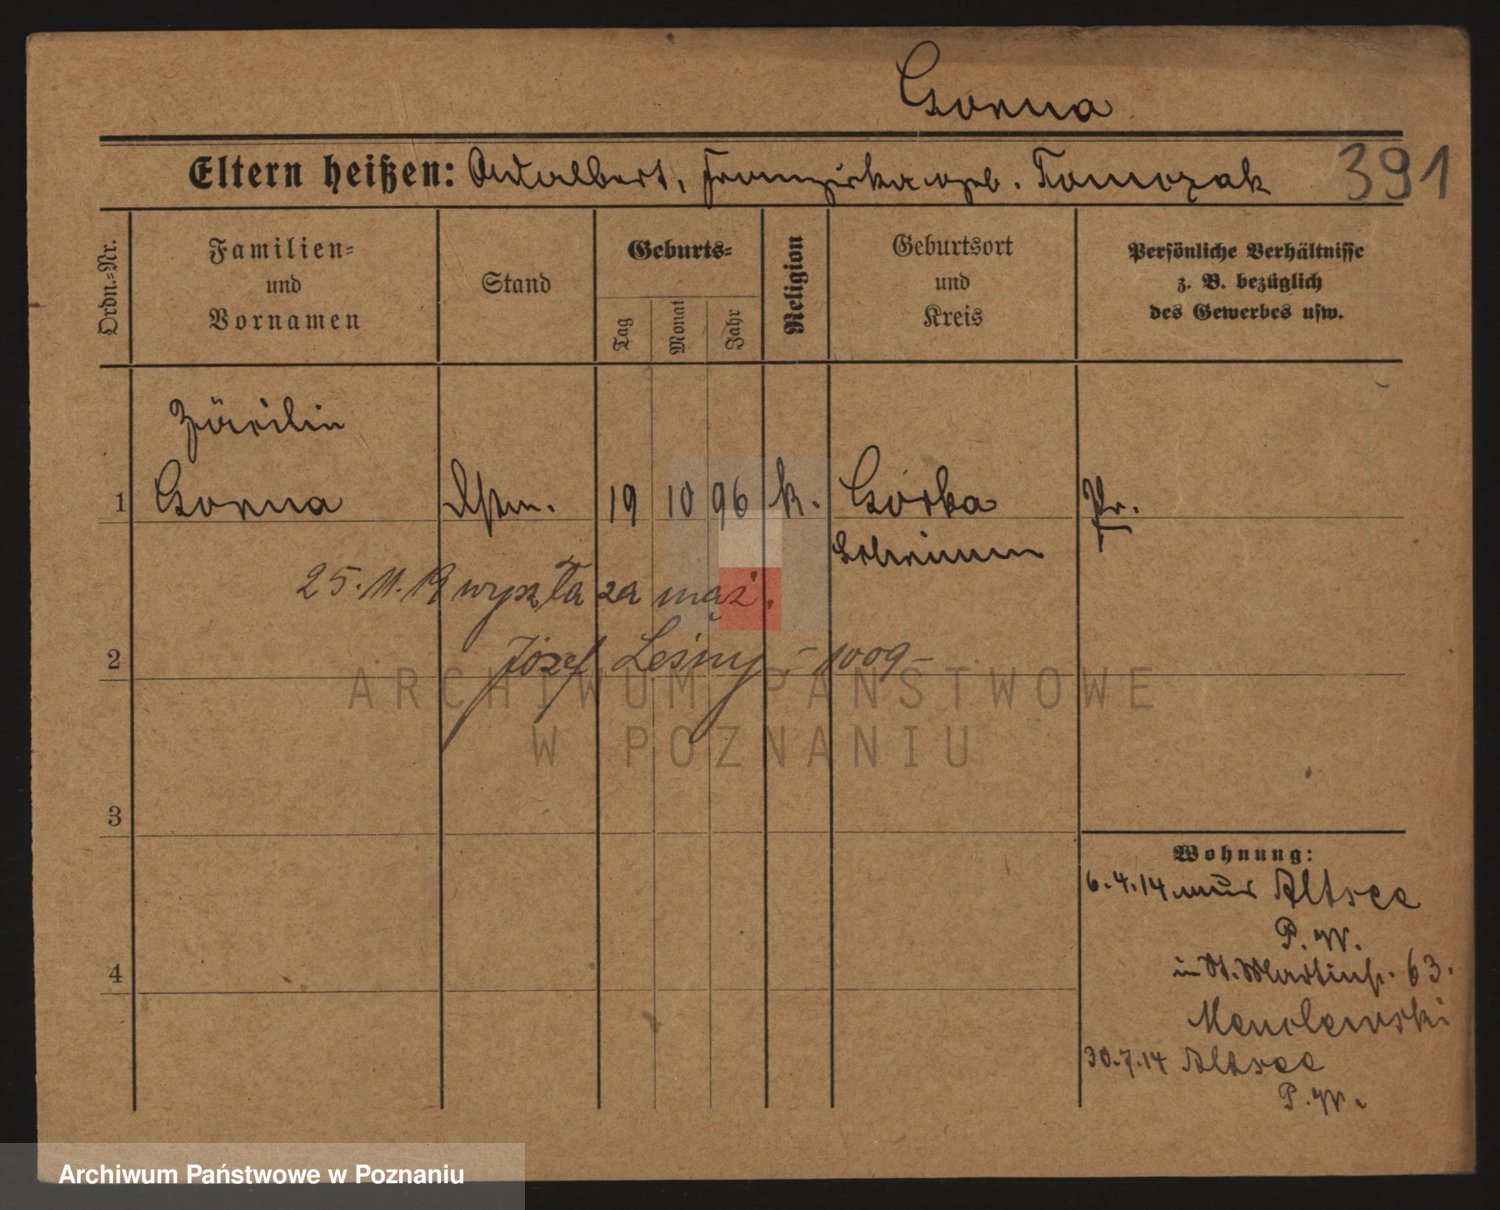 Gorna
Eltern heißen: Adalbert, Franziska geb. Tomczak 391
Ordn.-Nr.
Familien-
und
Vornamen
Stand
Geburts-
Tag
Monat
Jahr
Religion
Geburtsort
und
Kreis
Persönliche Verhältnisse
z. B. bezüglich
des Gewerbes usw.
Zäcilie
1 Gorna Dstm. 19 10 96 k. Górka Pr.
Schrimm
25.11.19 wyszła za mąż.
2 Józef Leśny - 1009 -
ARCHIWUM PAŃSTWOWE
W POZNANIU
3
Wohnung:
6.4.14 aus Altsee
P.W.
in St. Martinstr. 63.
4
30.7.14 Altsee
P.W.
Archiwum Państwowe w Poznaniu